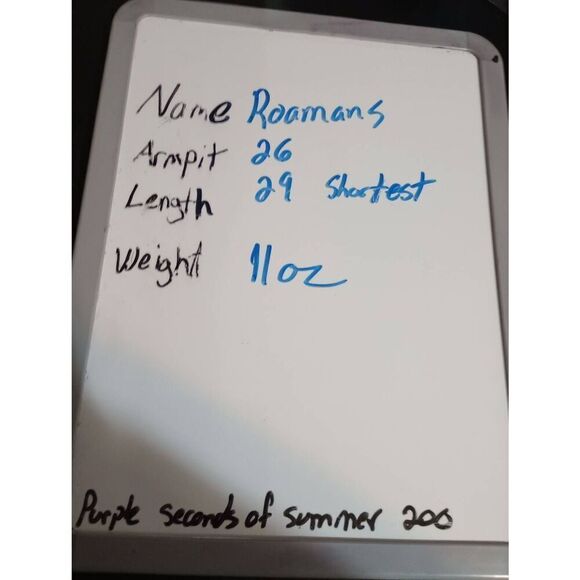 Name Roamans
Armpit 26
Length 29 Shortest
Weight 11oz
Purple seconds of summer 200